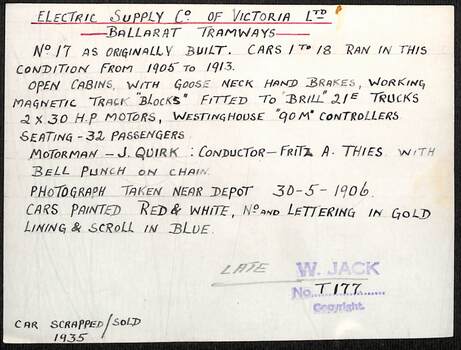 ELECTRIC SUPPLY Cº OF VICTORIA LTD
BALLARAT TRAMWAYS
Nº 17 AS ORIGINALLY BUILT. CARS 1 TO 18 RAN IN THIS
CONDITION FROM 1905 TO 1913.
OPEN CABINS, WITH GOOSE NECK HAND BRAKES, WORKING
MAGNETIC TRACK "BLOCKS" FITTED TO "BRILL" 21E TRUCKS
2 X 30 H.P MOTORS, WESTINGHOUSE "90M" CONTROLLERS
SEATING - 32 PASSENGERS
MOTORMAN - J. QUIRK : CONDUCTOR - FRITZ A. THIES WITH
BELL PUNCH ON CHAIN.
PHOTOGRAPH TAKEN NEAR DEPOT 30-5-1906.
CARS PAINTED RED & WHITE, Nº AND LETTERING IN GOLD
LINING & SCROLL IN BLUE.
LATE W. JACK
No. T177
Copyright.
CAR SCRAPPED/SOLD
1935